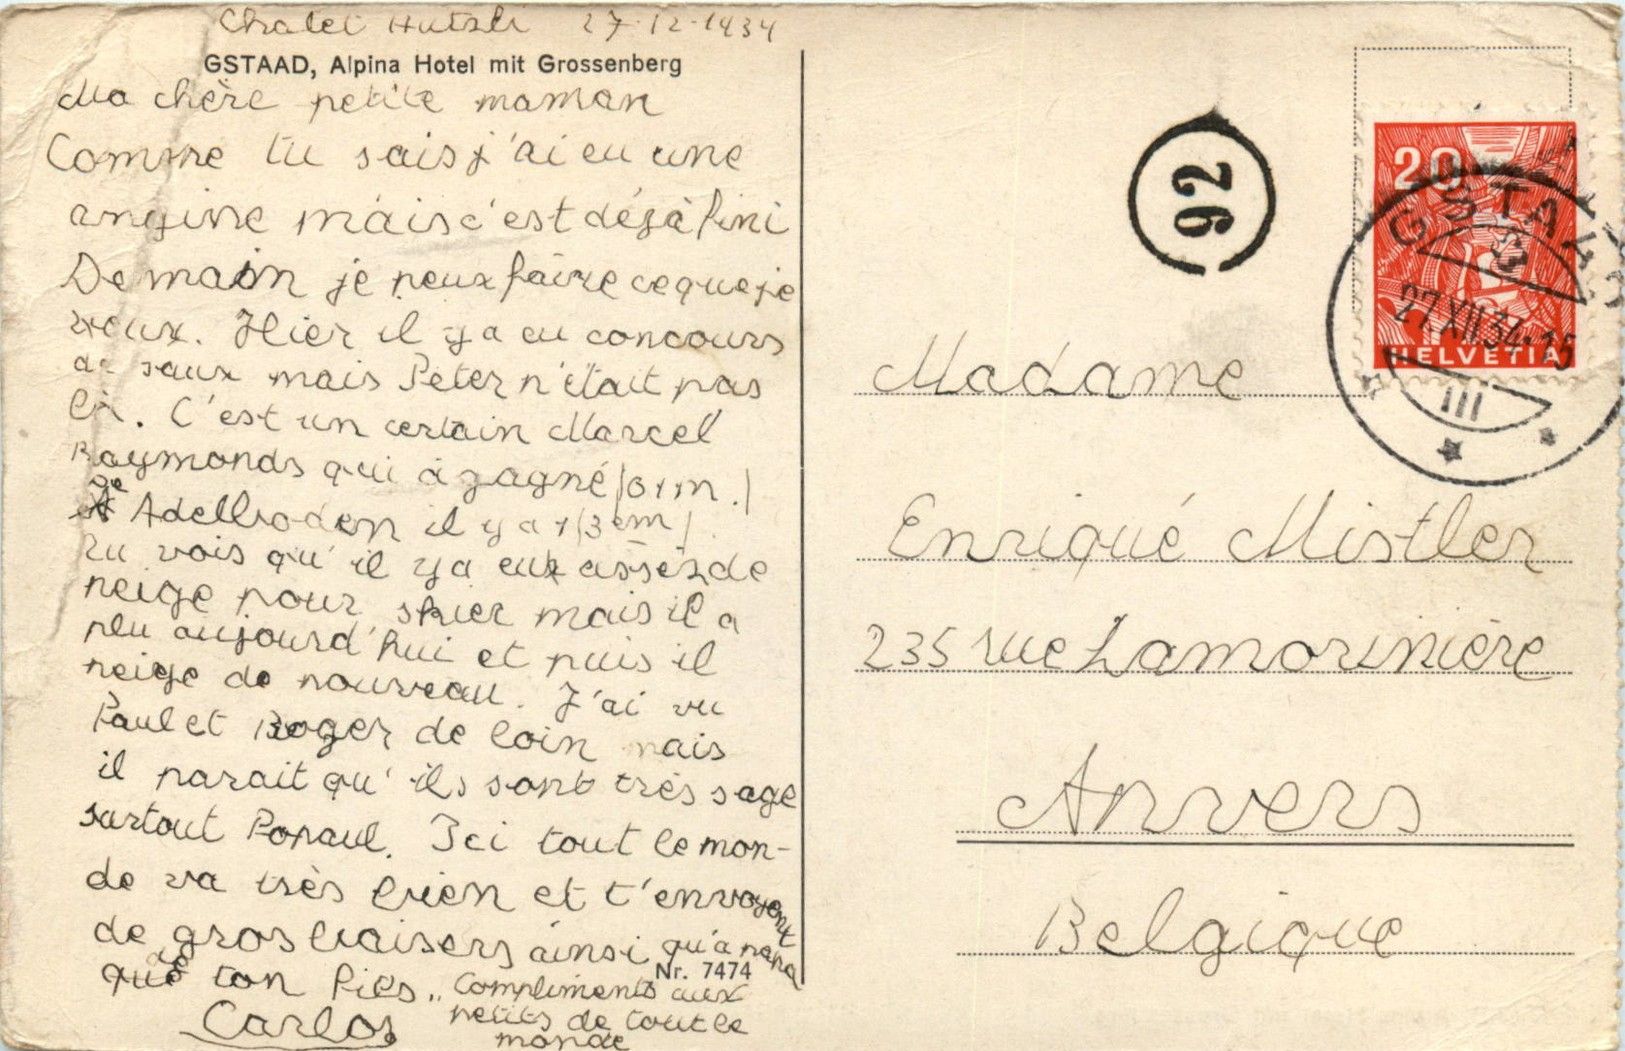 Chalet Hutzli 27-12-1934
GSTAAD, Alpina Hotel mit Grossenberg
Ma chère petite maman
Comme tu sais j'ai eu une
angine mais c'est déjà fini
Demain je peux faire ce que je
veux. Hier il y a eu concours
de saux mais Peter n'était pas
là. C'est un certain Marcel
Raymonds qui a gagné
Adelboden il y a
Tu vois qu'il y a eu assez de
neige pour skier mais il a
plu aujourd'hui et puis il
neige de nouveau. J'ai vu
Paul et Roger de loin mais
il parait qu'ils sont très sage
surtout Popaul. Ici tout le mon-
de va très bien et t'envoyent
de gros baisers ainsi qu'à papa
que ton fils
Carlos
Compliments aux
petits de tout le
monde
Nr. 7474
92
20
HELVETIA
GSTAAD
27.XII.34.15
III
Madame
Enriqué Mistler
235 rue Lamorinière
Anvers
Belgique